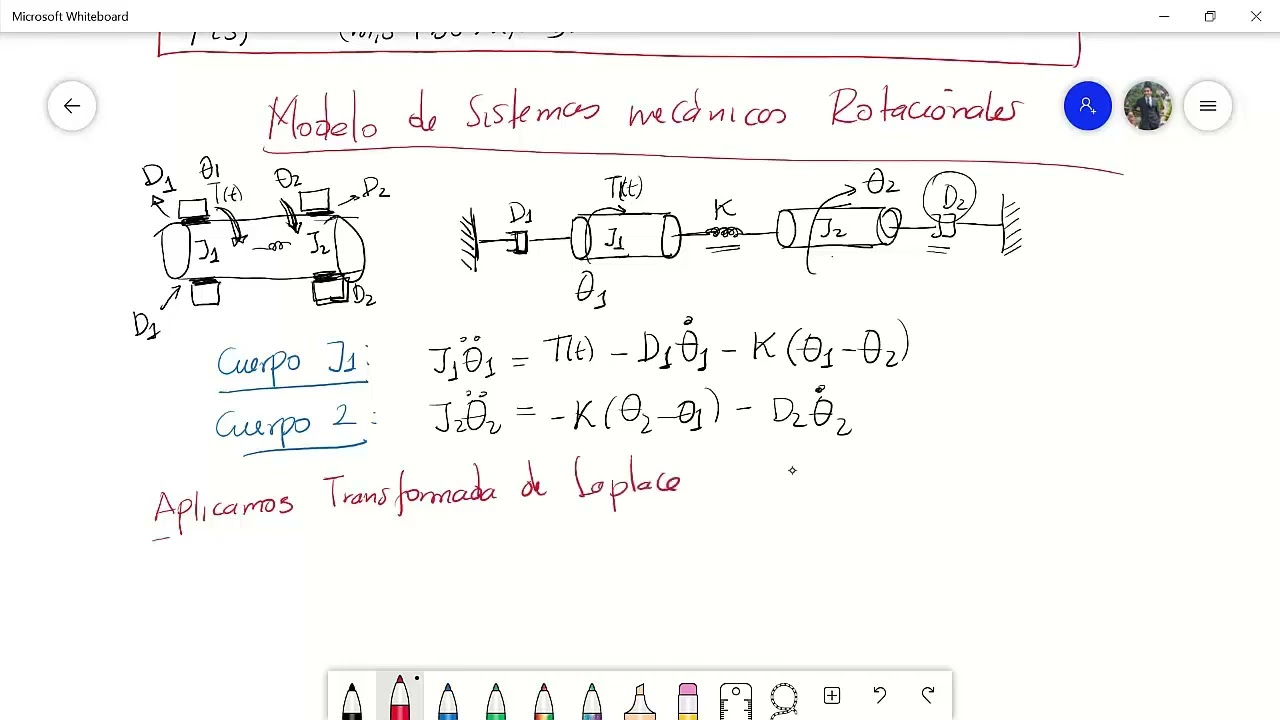 Microsoft Whiteboard
Modelo de Sistemas mecánicos Rotacionales
D1 θ1 T(t) θ2 D2
J1 J2
D1 D2
D1 T(t) K θ2 D2
J1 J2
θ1
Cuerpo J1: J1θ̈1 = T(t) - D1θ̇1 - K(θ1-θ2)
Cuerpo 2: J2θ̈2 = -K(θ2-θ1) - D2θ̇2
Aplicamos Transformada de Laplace